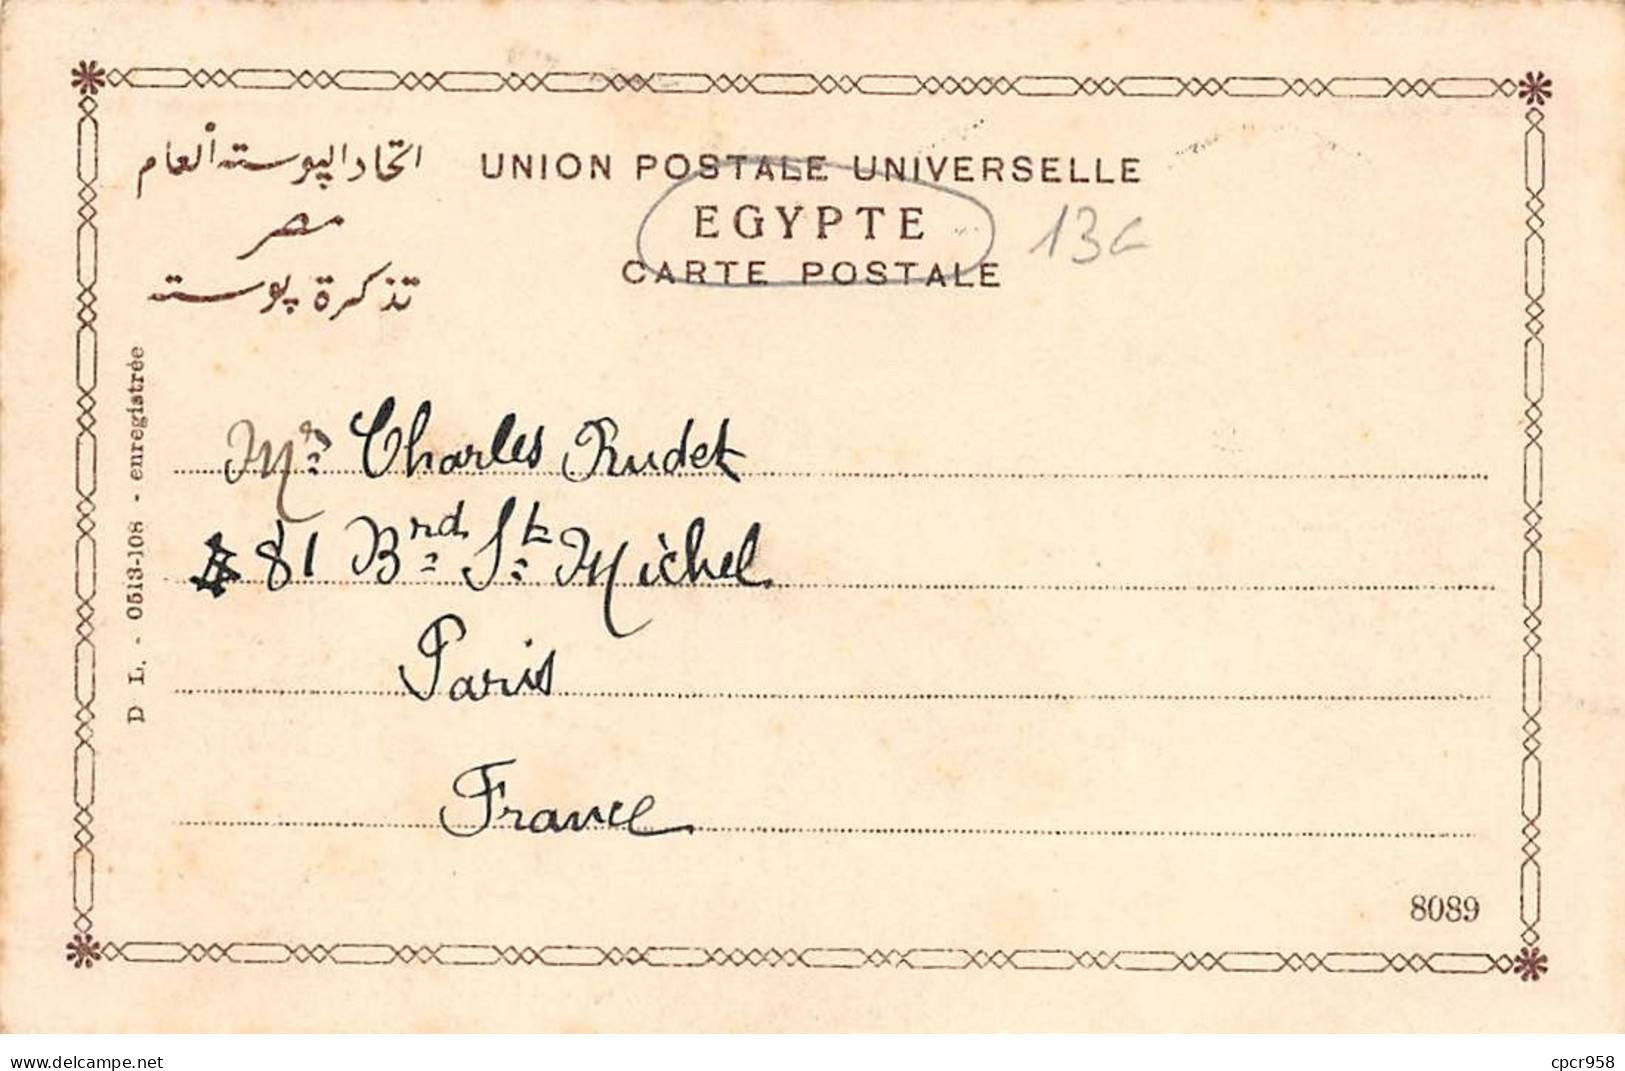 اتحاد الپوسته العام
مصر
تذكرة پوسته
UNION POSTALE UNIVERSELLE
EGYPTE
CARTE POSTALE
13€
D L. - 0513-108 - enregistrée
Mr. Charles Rudet
81 Brd St Michel
Paris
France
8089
delcampe.net
cpcr958